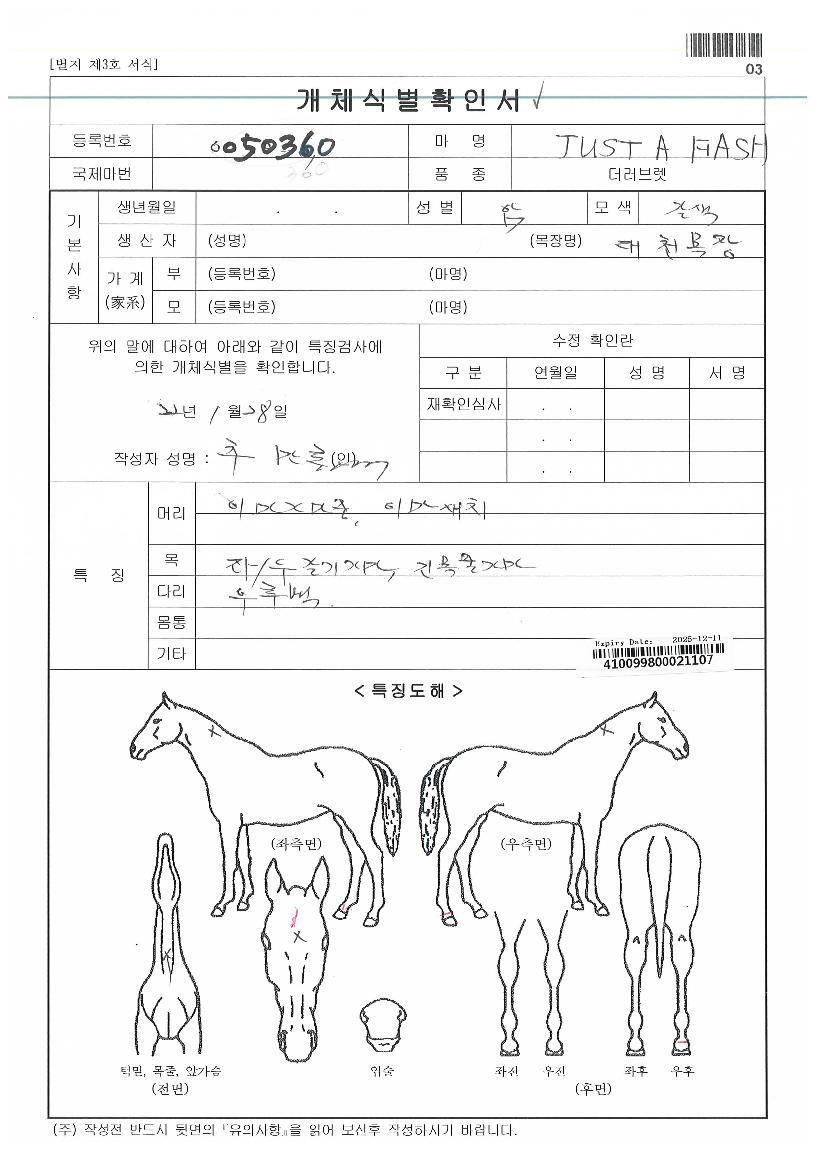 [별지 제3호 서식]
03
개체식별확인서 √
등록번호 0050360 마 명 JUST A FLASH
국제마번 360 품 종 더러브렛
기본사항
생년월일 . . 성 별 암 모 색 갈색
생 산 자 (성명) (목장명) 대천목장
가 계 (家系) 부 (등록번호) (마명)
모 (등록번호) (마명)
위의 말에 대하여 아래와 같이 특징검사에
의한 개체식별을 확인합니다.
22년 1월 28일
작성자 성명 : (인)
수정 확인란
구 분 연월일 성 명 서 명
재확인심사 . .
. .
. .
특 징
머리
목
다리 우후백.
몸통
기타
Expiry Date: 2025-12-11
410099800021107
< 특징도해 >
(좌측면) (우측면)
턱밑, 목줄, 앞가슴 입술 좌전 우전 좌후 우후
(전면) (후면)
(주) 작성전 반드시 뒷면의 『유의사항』을 읽어 보신후 작성하시기 바랍니다.